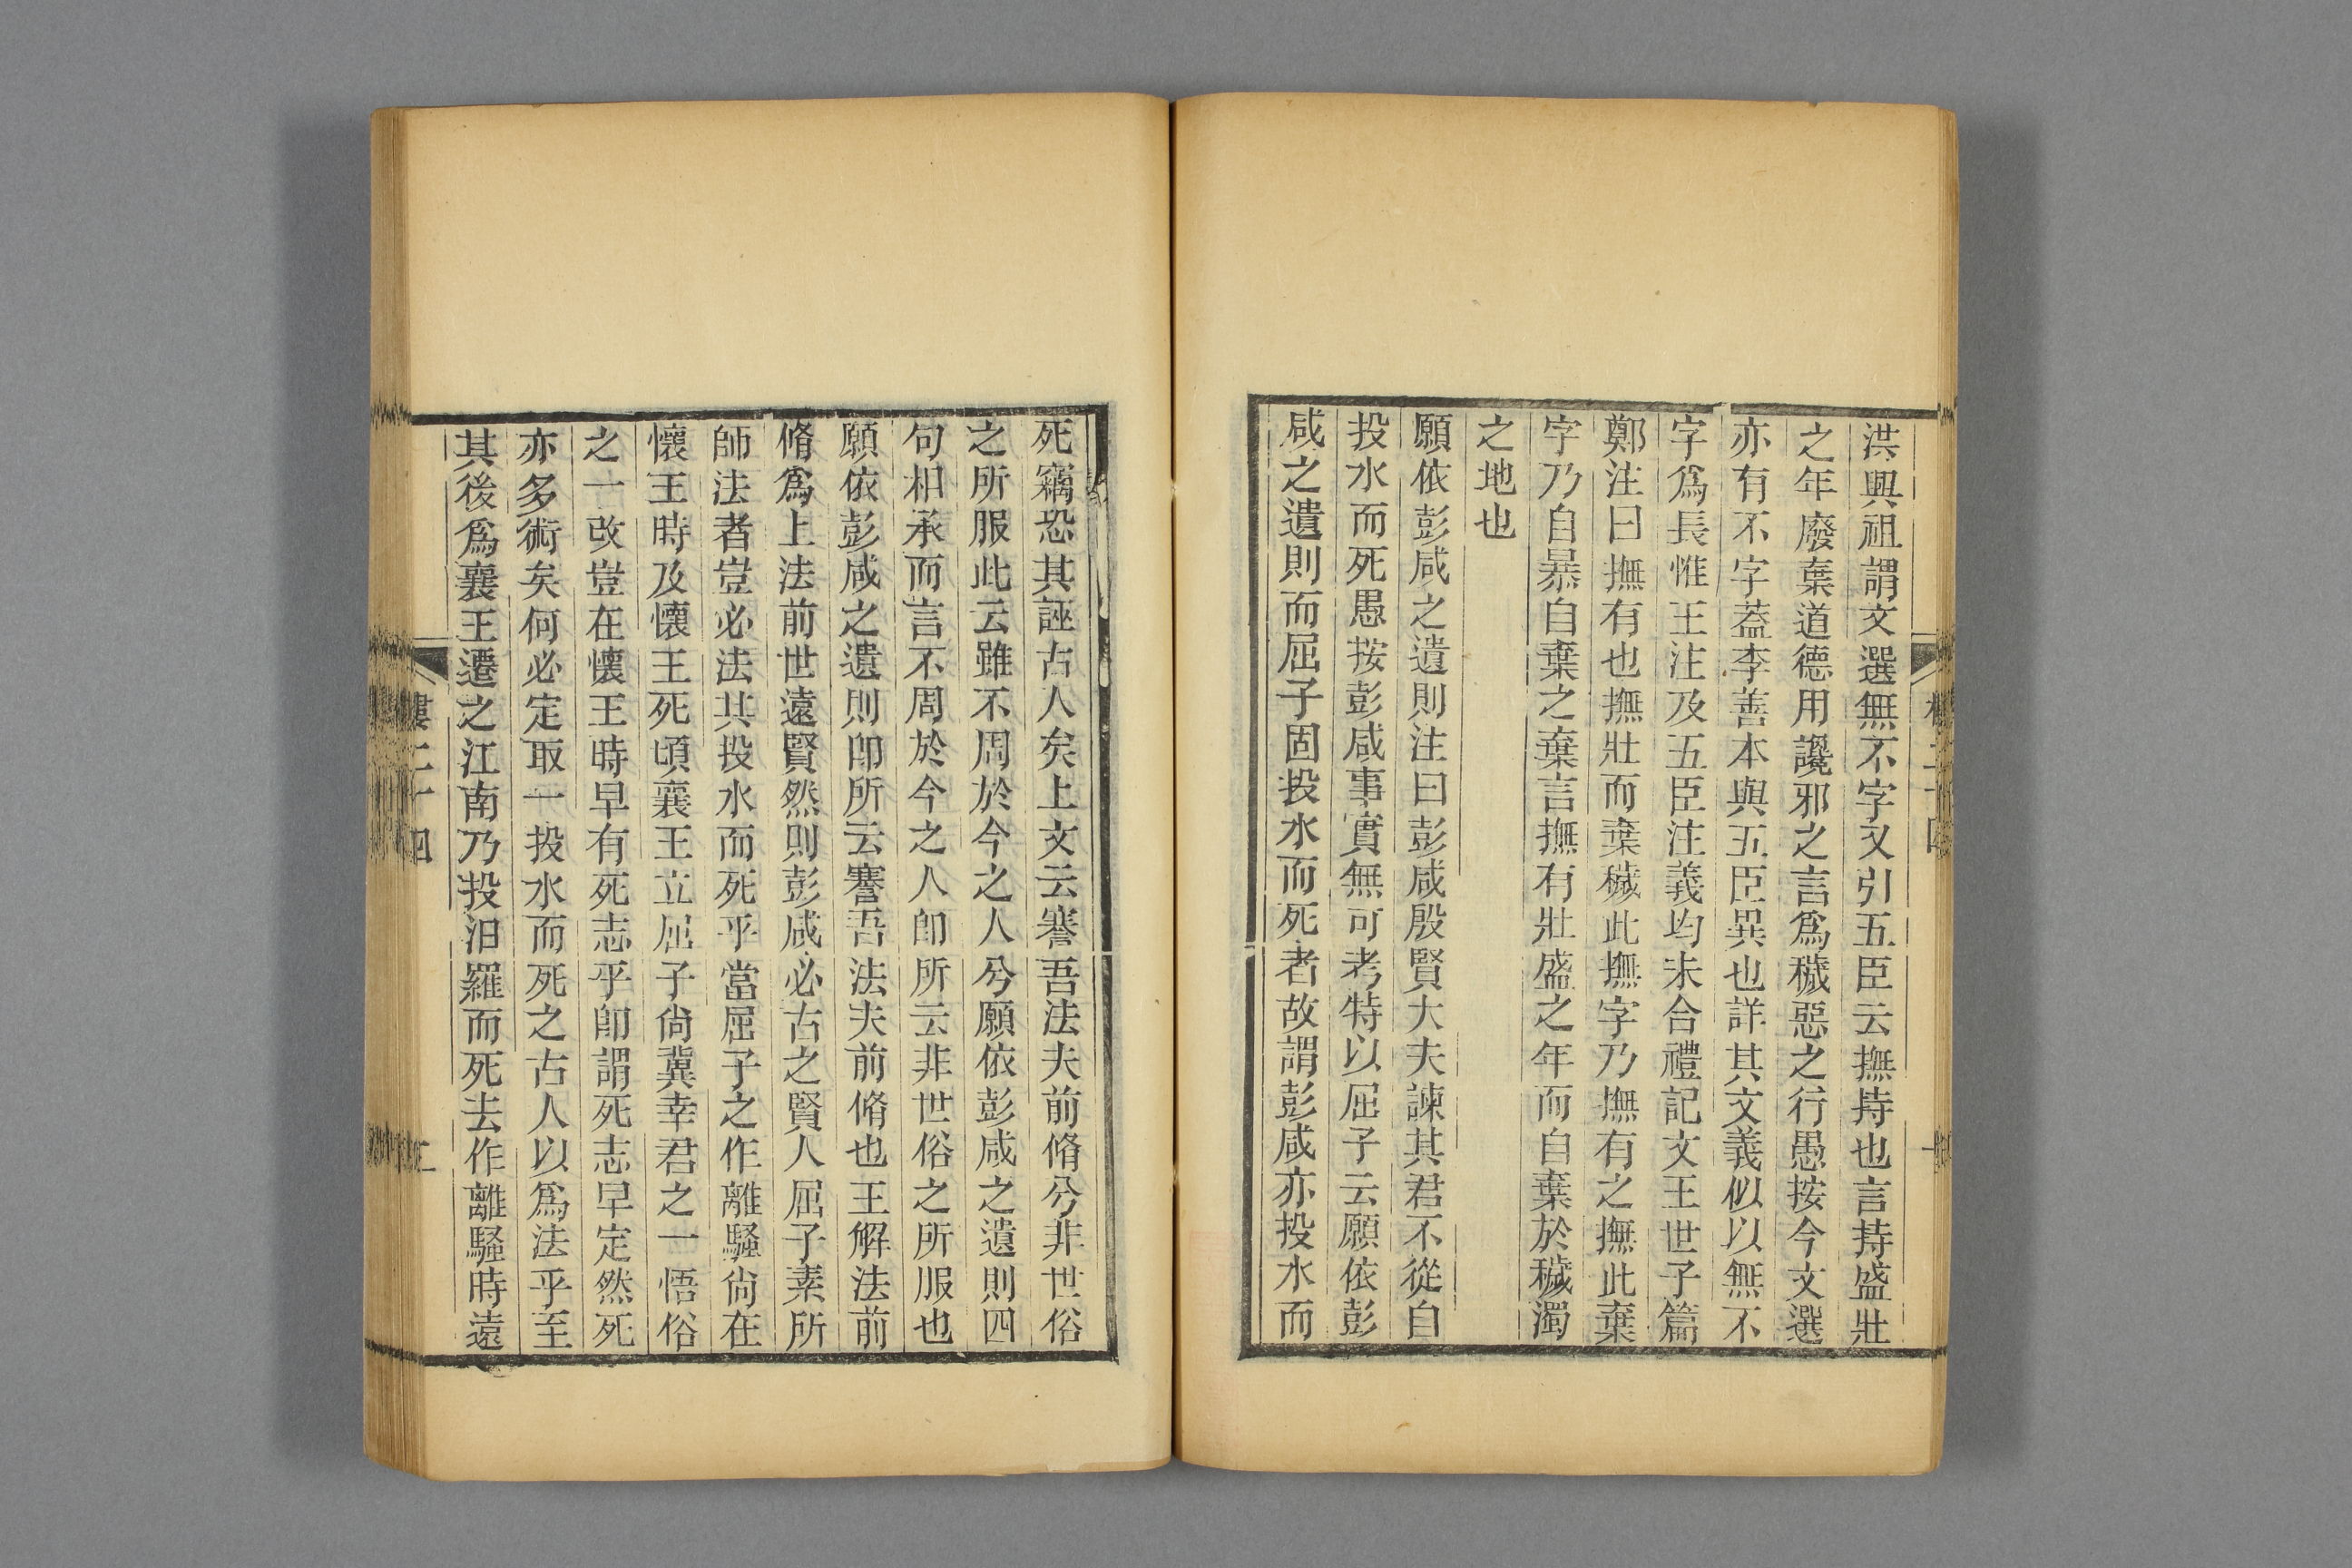 洪興祖謂文選無不字又引五臣云撫持也言持盛壯
之年廢棄道德用讒邪之言爲穢惡之行愚按今文選
亦有不字葢李善本與五臣異也詳其文義似以無不
字爲長惟王注及五臣注義均未合禮記文王世子篇
鄭注曰撫有也撫壯而棄穢此撫字乃撫有之撫此棄
字乃自暴自棄之棄言撫有壯盛之年而自棄於穢濁
之地也
願依彭咸之遺則注曰彭咸殷賢大夫諫其君不從自
投水而死愚按彭咸事實無可考特以屈子云願依彭
咸之遺則而屈子固投水而死者故謂彭咸亦投水而
死竊恐其誣古人矣上文云謇吾法夫前脩兮非世俗
之所服此云雖不周於今之人兮願依彭咸之遺則四
句相承而言不周於今之人卽所云非世俗之所服也
願依彭咸之遺則卽所云謇吾法夫前脩也王解法前
脩爲上法前世遠賢然則彭咸必古之賢人屈子素所
師法者豈必法其投水而死乎當屈子之作離騷尙在
懷王時及懷王死頃襄王立屈子尙冀幸君之一悟俗
之一改豈在懷王時早有死志乎卽謂死志早定然死
亦多術矣何必定取一投水而死之古人以爲法乎至
其後爲襄王遷之江南乃投汨羅而死去作離騷時遠
樓二十四